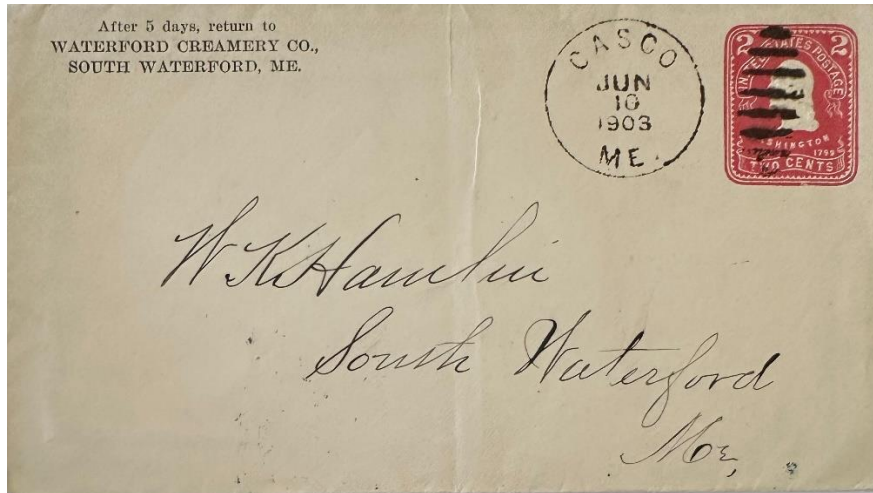 After 5 days, return to
WATERFORD CREAMERY CO.,
SOUTH WATERFORD, ME.
CASCO
JUN
10
1903
ME.
2 UNITED STATES POSTAGE 2
WASHINGTON
1799
TWO CENTS
W K Hamlin
South Waterford
Me,